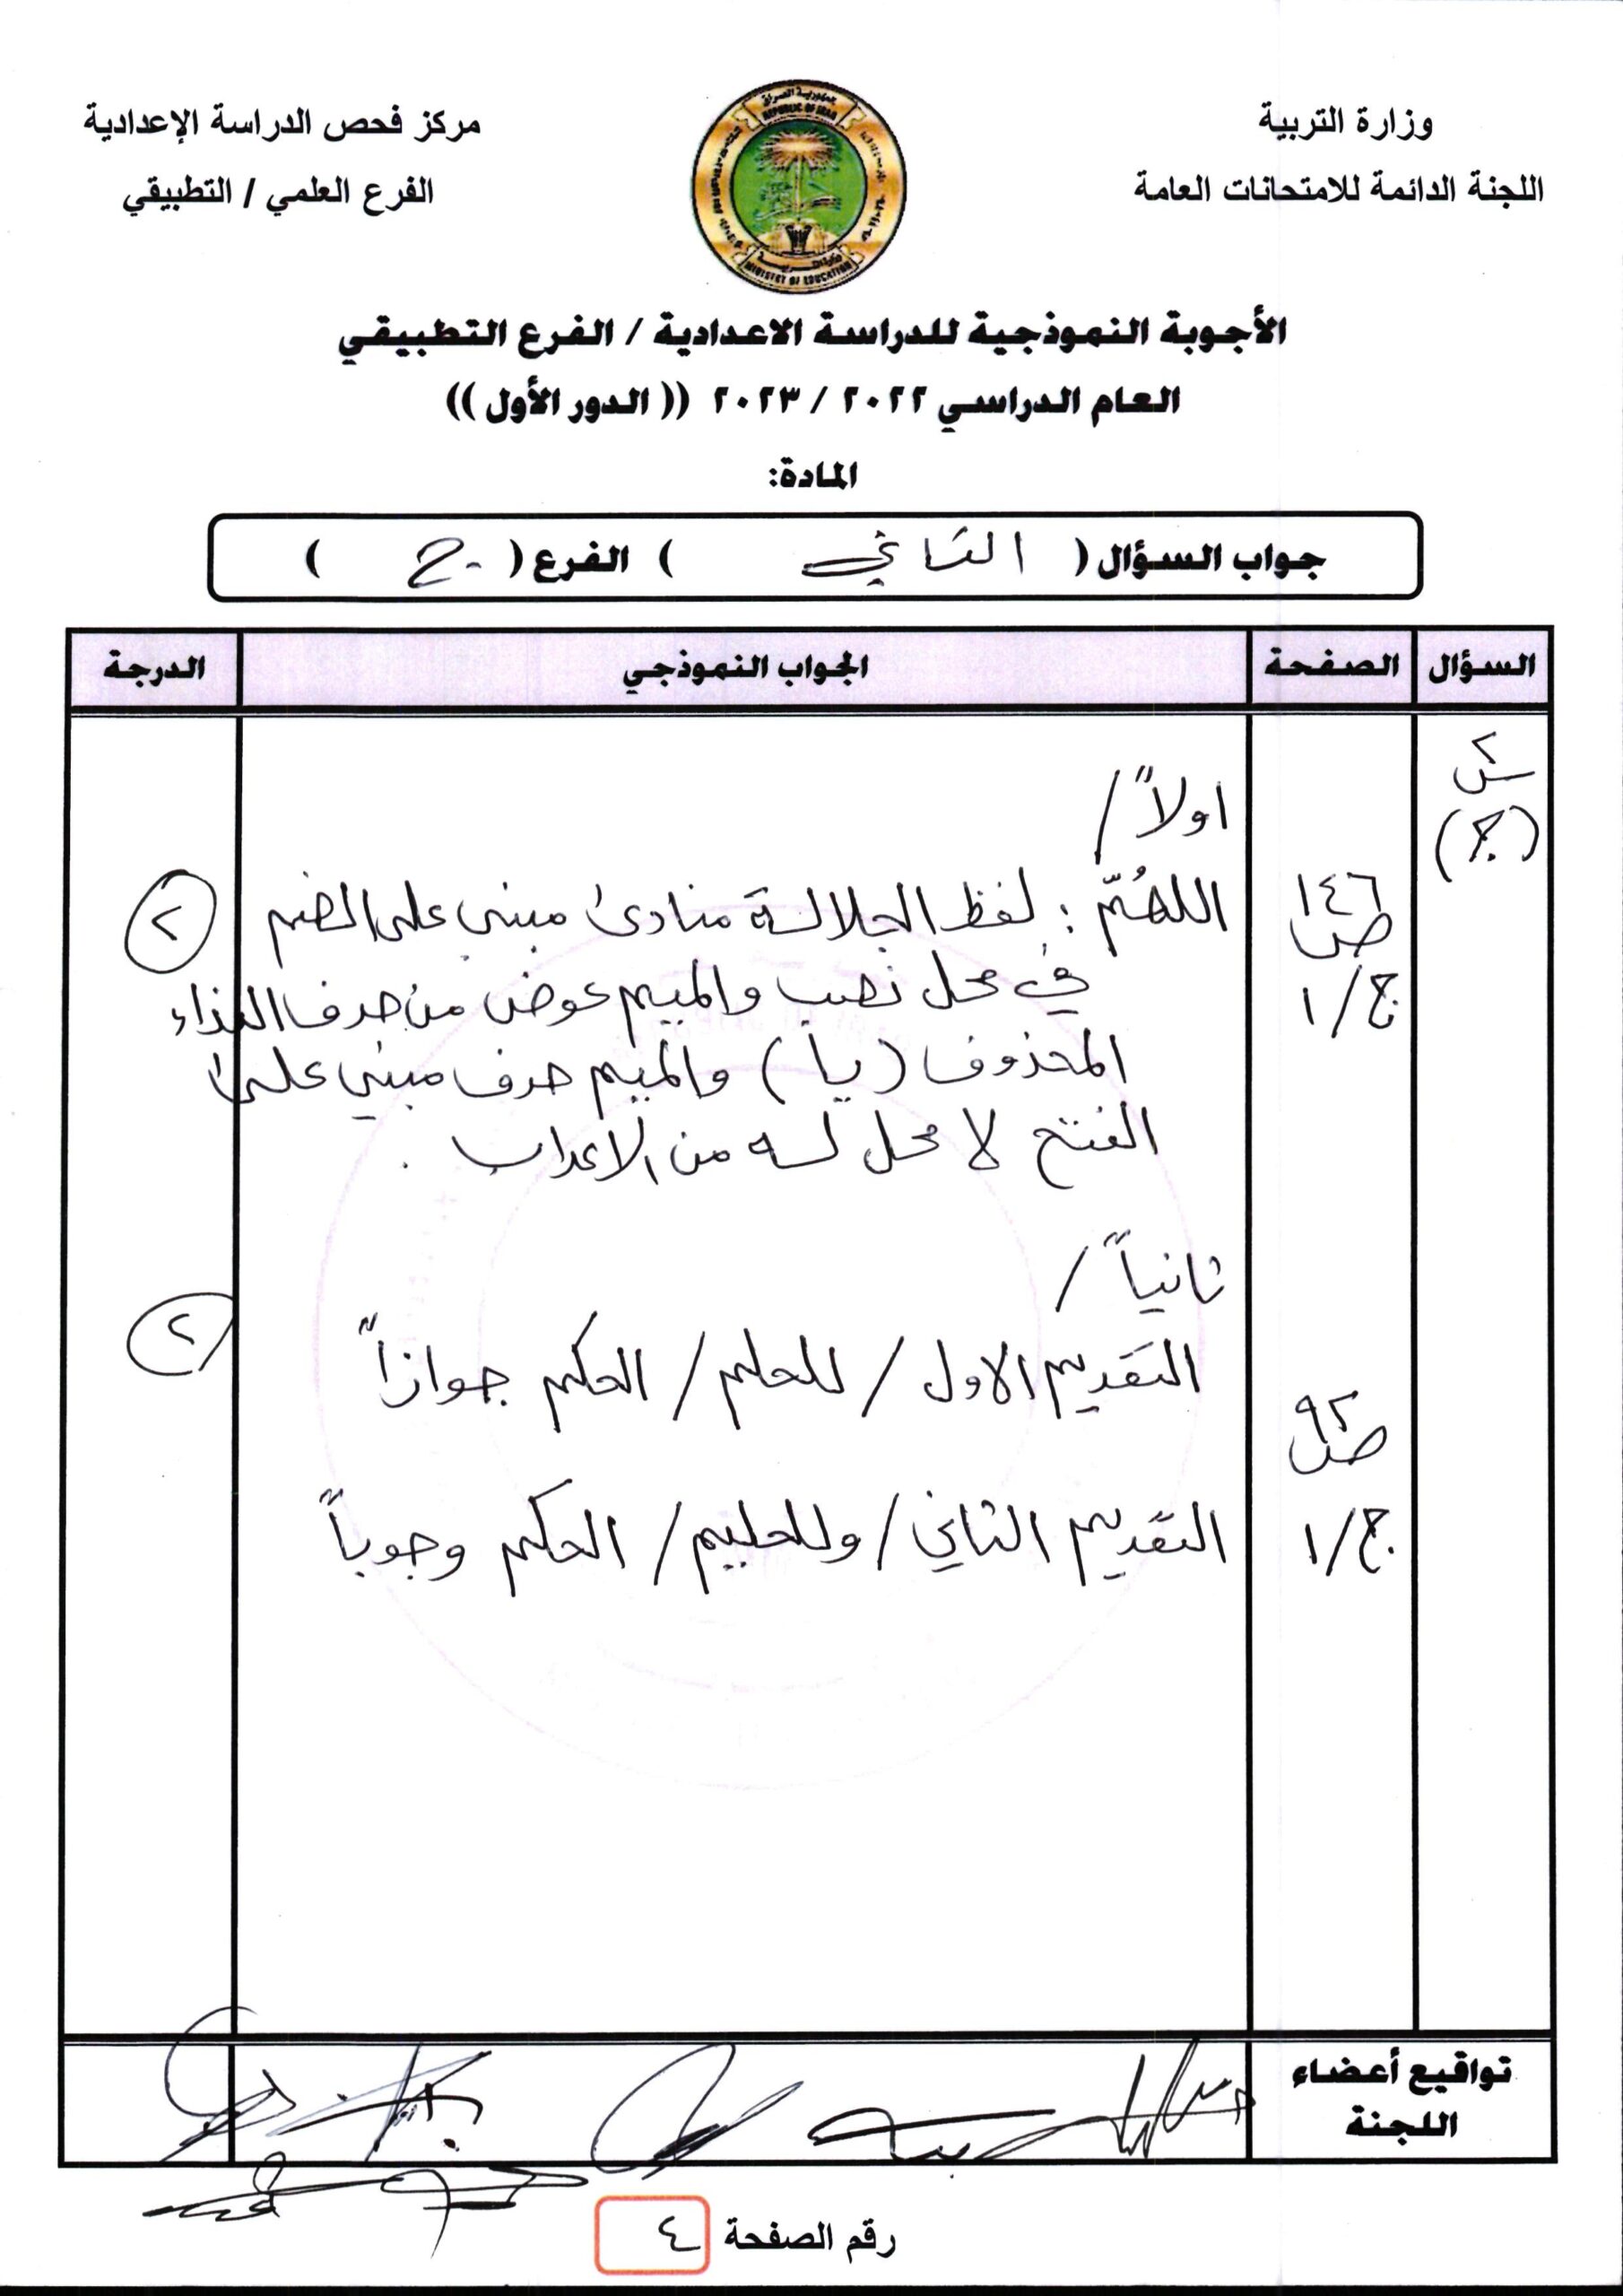 وزارة التربية
اللجنة الدائمة للامتحانات العامة
مركز فحص الدراسة الإعدادية
الفرع العلمي / التطبيقي
جمهورية العراق
REPUBLIC OF IRAQ
MINISTRY OF EDUCATION
الأجوبة النموذجية للدراسة الاعدادية / الفرع التطبيقي
العام الدراسي ٢٠٢٢ / ٢٠٢٣ (( الدور الأول ))
المادة:
جواب السؤال ( الثاني ) الفرع ( ج )
السؤال الصفحة الجواب النموذجي الدرجة
س٢
(ج)
اولاً /
ص ١٤٦
ج/١
اللهُمّ : لفظ الجلالة منادى مبني على الضم ٢
في محل نصب والميم عوض من حرف النداء
المحذوف (يا) والميم حرف مبني على
الفتح لا محل له من الاعراب .
ثانياً /
التقديم الاول / للحلم / الحكم جوازاً ٢
ص ٩٢
ج/١
التقديم الثاني / وللحليم / الحكم وجوباً
تواقيع أعضاء
اللجنة
رقم الصفحة ٤